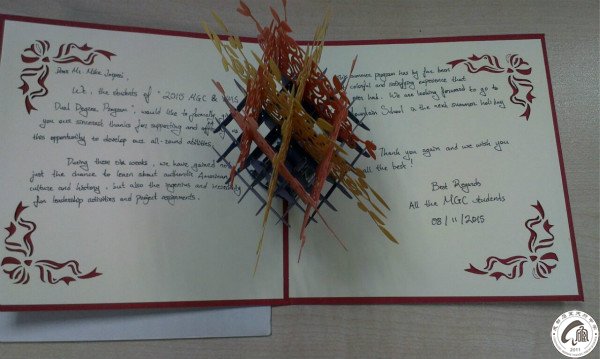 Dear Mr. Mike
We, the students of "2015 MGC &
Dual Degree Program", would like to
you our sincerest thanks for supporting and
this opportunity to develop our all-round abilities.
During these weeks, we have gained not
just the chance to learn about authentic American
culture and history, but also the and necessity
for leadership activities and project assignments.
summer program has by far been
colorful and satisfying experience that
ever had. We are looking forward to go to
School in the next summer holiday
Thank you again and we wish you
all the best!
Best Regards
All the MGC students
08/11/2015
2011